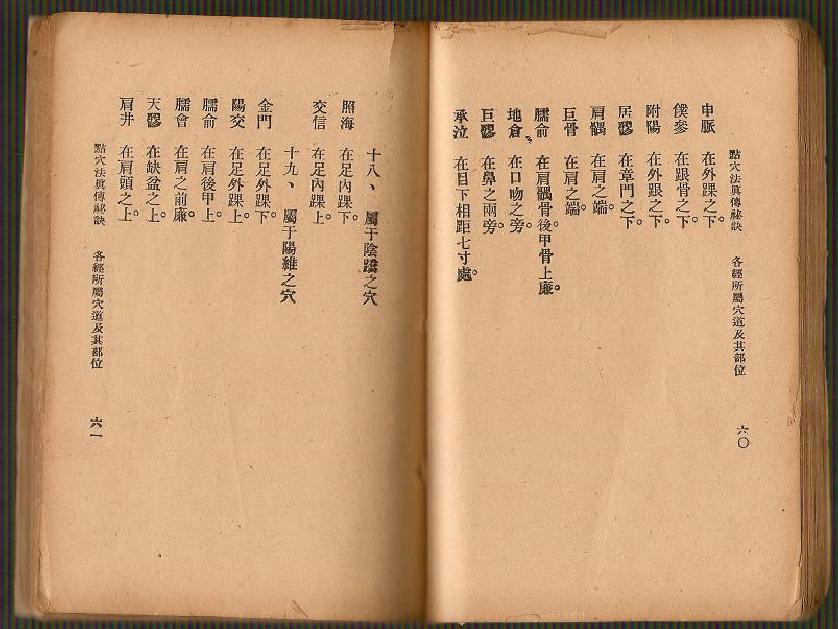 點穴法眞傳祕訣　各經所屬穴道及其部位　六〇
申脈　在外踝之下。
僕參　在跟骨之下。
附陽　在外跟之下。
居髎　在章門之下。
肩髃　在肩之端。
巨骨　在肩之端。
臑俞　在肩髃骨後。甲骨上廉。
地倉　在口吻之旁。
巨髎　在鼻之兩旁。
承泣　在目下相距七寸處。
十八、屬于陰蹻之穴
照海　在足內踝下。
交信　在足內踝上。
十九、屬于陽維之穴
金門　在足外踝下。
陽交　在足外踝上。
臑俞　在肩後甲上。
臑會　在肩之前廉。
天髎　在缺盆之上。
肩井　在肩頭之上。
點穴法眞傳祕訣　各經所屬穴道及其部位　六一